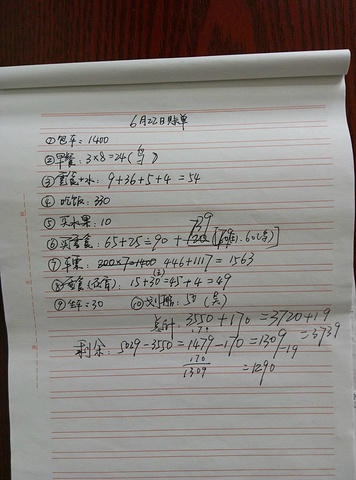 6月22日账单
①包车=1400
②早餐:3×8=24(
③零食+水:9+36+5+4=54
④吃饭:330
⑤买水果:10
⑥买零食:65+25=90+
⑦车票:200×7=1400 446+1117=1563
⑧零食(:15+30=45+4=49
⑨ =30 ⑩ :50(吴)
总计:3550+170=3720+19
=3739
剩余:5029-3550=1479-170=1309
-19
170
1309
=1290